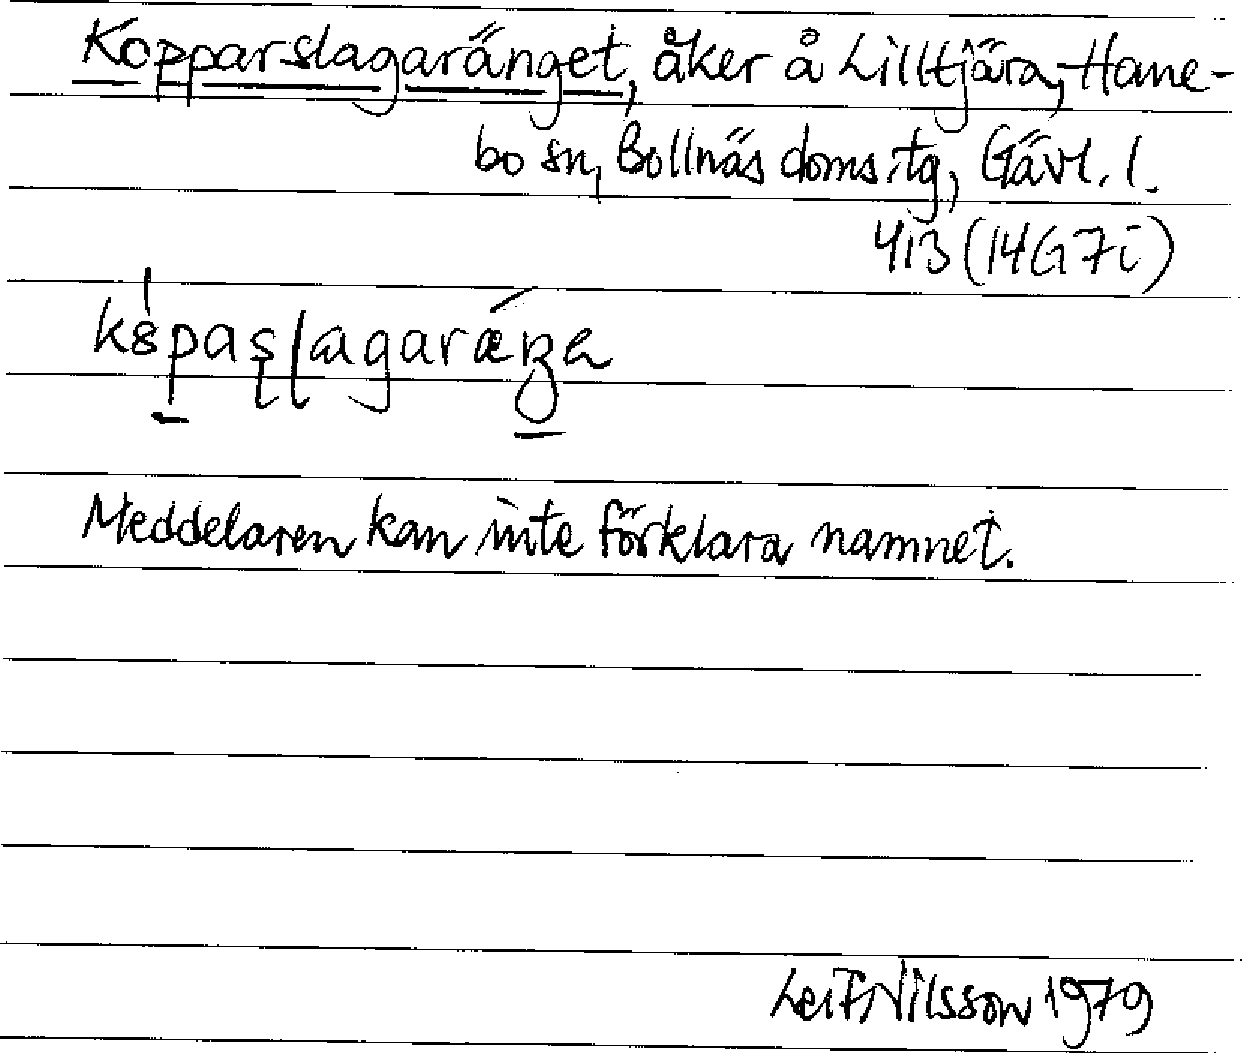 Kopparslagaränget, åker å Lilltjära, Hane-
bo sn, Bollnäs doms.tg, Gävl. l.
413 (14G7i)
Meddelaren kan inte förklara namnet.
Leif Nilsson 1979